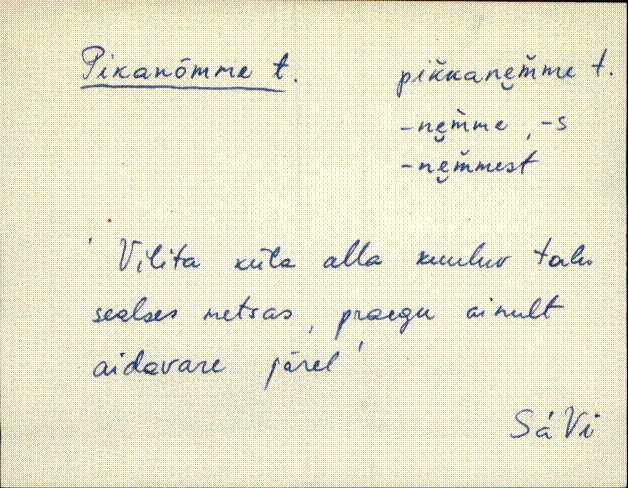 Pikanõmme t. pikkane̮m̆me t.
-ne̮m̀me, -s
-ne̮m̆mest
' Vilita küla alla kuuluv talu
sealses metsas, praegu ainult
aidavare järel '
Sá Vi